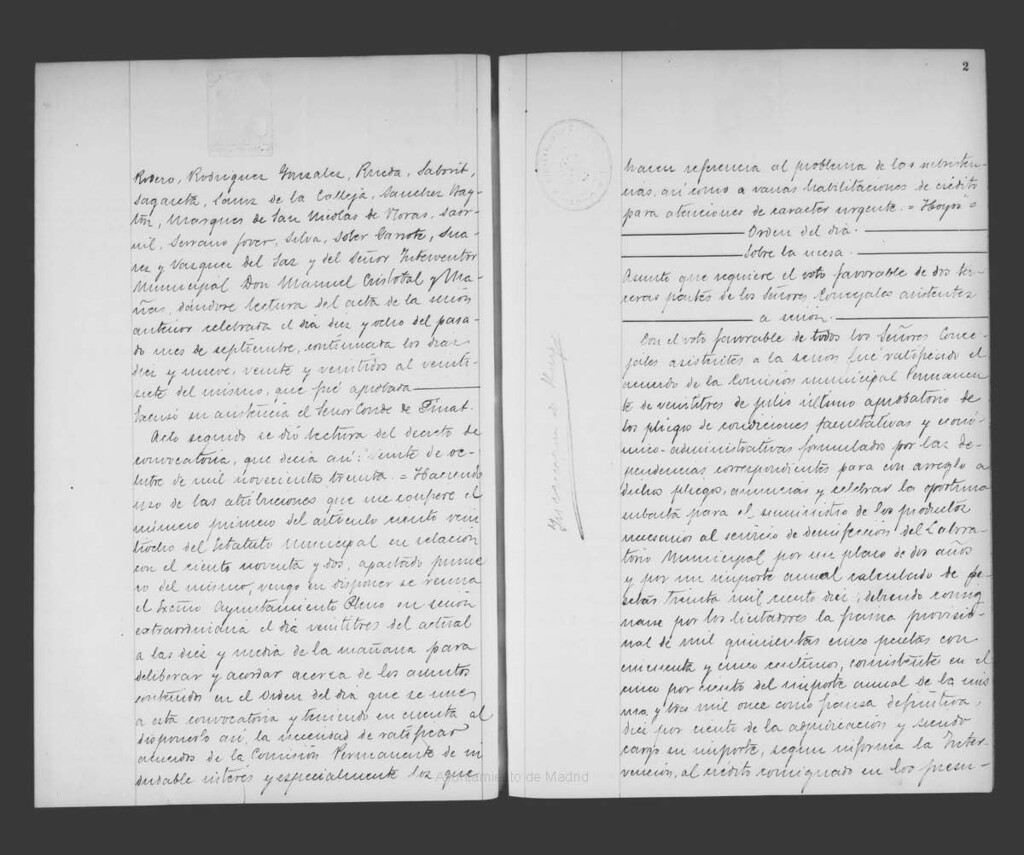 Rosero, Rodriguez Gonzalez, Rueda, Saborit,
Sagaseta, Sainz de la Calleja, Sanchez Bay-
tón, Marques de San Nicolás de Noras, Saor-
nil, Serrano Jover, Silva, Soler Garrote, Sua-
rez y Vazquez del Saz y del Señor Interventor
Municipal Don Manuel Cristobal y Ma-
ñas, dándose lectura del acta de la sesión
anterior celebrada el dia diez y ocho del pasa-
do mes de septiembre, continuada los dias
diez y nueve, veinte y veintidos al veinti-
siete del mismo, que fué aprobada
Excusó su asistencia el Señor Conde de Finat.
Acto seguido se dió lectura del decreto de
convocatoria, que decia asi: Veinte de oc-
tubre de mil novecientos treinta. = Haciendo
uso de las atribuciones que me confiere el
número primero del artículo ciento vein
tiocho del Estatuto Municipal en relación
con el ciento noventa y dos, apartado prime
ro del mismo, vengo en disponer se reuna
el Excmo Ayuntamiento Pleno en sesión
extraordinaria el dia veintitres del actual
a las diez y media de la mañana para
deliberar y acordar acerca de los asuntos
contenidos en el Orden del dia que se une
a esta convocatoria y teniendo en cuenta al
disponerlo asi, la necesidad de ratificar
acuerdos de la Comisión Permanente de in
dudable interés y especialmente los que
Ayuntamiento de Madrid
2
hacen referencia al problema de las subsisten-
cias, asi como a varias habilitaciones de crédito
para atenciones de caracter urgente. = Hoyos =
Orden del dia.
Sobre la mesa.
Asunto que requiere el voto favorable de dos ter-
ceras partes de los Señores Concejales asistentes
a sesión.
Con el voto favorable de todos los Señores Conce-
jales asistentes a la sesión fué ratificado el
acuerdo de la Comisión municipal Permanen
te de veintitres de julio último aprobatorio de
los pliegos de condiciones facultativas y econó-
mico-administrativas formulados por las de-
pendencias correspondientes para con arreglo a
dichos pliegos, anunciar y celebrar la oportuna
subasta para el suministro de los productos
necesarios al servicio de desinfección del Labora-
torio Municipal por un plazo de dos años
y por un importe anual calculado de pe-
setas treinta mil ciento diez, debiendo consig
narse por los licitadores la fianza provisio-
nal de mil quinientas cinco pesetas con
cincuenta y cinco centimos, consistente en el
cinco por ciento del importe anual de la mis
ma y tres mil once como fianza definitiva,
diez por ciento de la adjudicación y siendo
cargo su importe, segun informa la Inter-
vención, al crédito consignado en los presu-